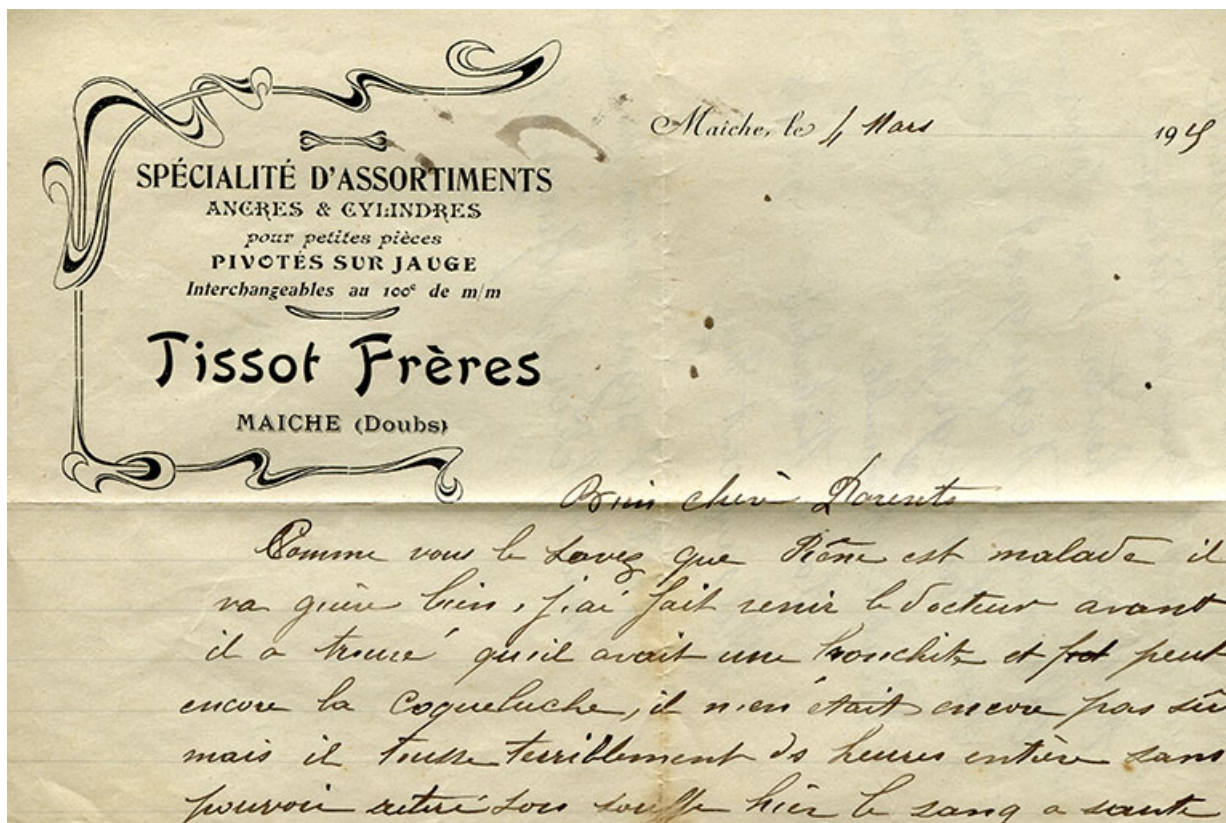 SPÉCIALITÉ D'ASSORTIMENTS
ANCRES & CYLINDRES
pour petites pièces
PIVOTÉS SUR JAUGE
Interchangeables au 100e de m/m
Tissot Frères
MAICHE (Doubs)
Maîche, le 4 Mars 191
Bien chère Parents
Comme vous le savez que est malade il
va guère bien, j'ai fait venir le docteur avant
il a trouvé qu'il avait une bronchite et peut
encore la coqueluche, il n'en était encore pas sûr
mais il tousse terriblement ds heures entière sans
pouvoir son souffle hièr le sang a sauté